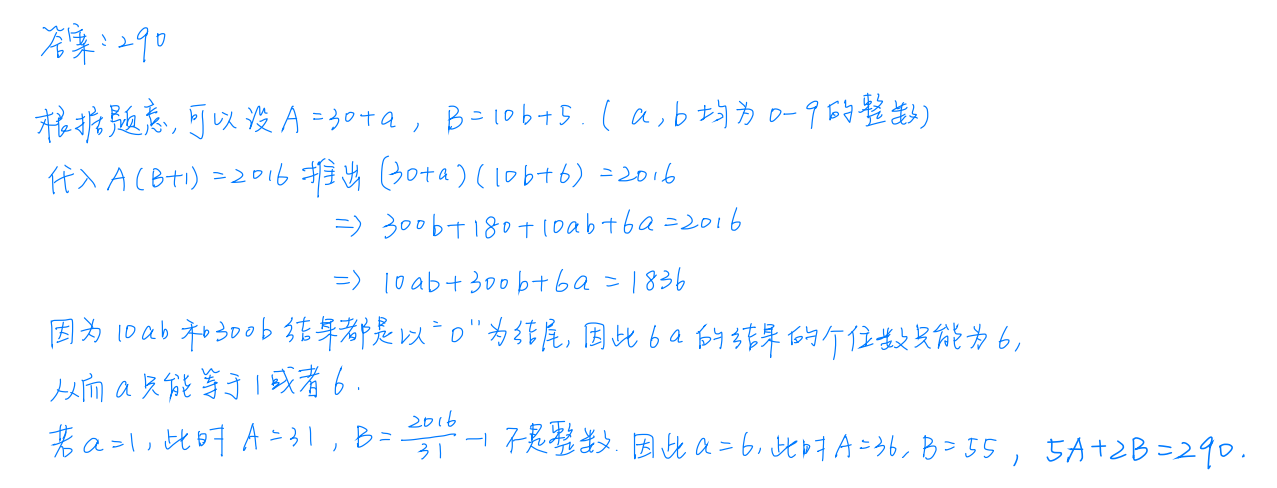 答案：290
根据题意，可以设A=30+a，B=10b+5.（a,b均为0-9的整数）
代入A(B+1)=2016推出(30+a)(10b+6)=2016
=> 300b+180+10ab+6a=2016
=> 10ab+300b+6a=1836
因为10ab和300b结果都是以"0"为结尾,因此6a的结果的个位数只能为6,
从而a只能等于1或者6.
若a=1,此时A=31,B=2016/31-1不是整数.因此a=6,此时A=36,B=55,5A+2B=290.